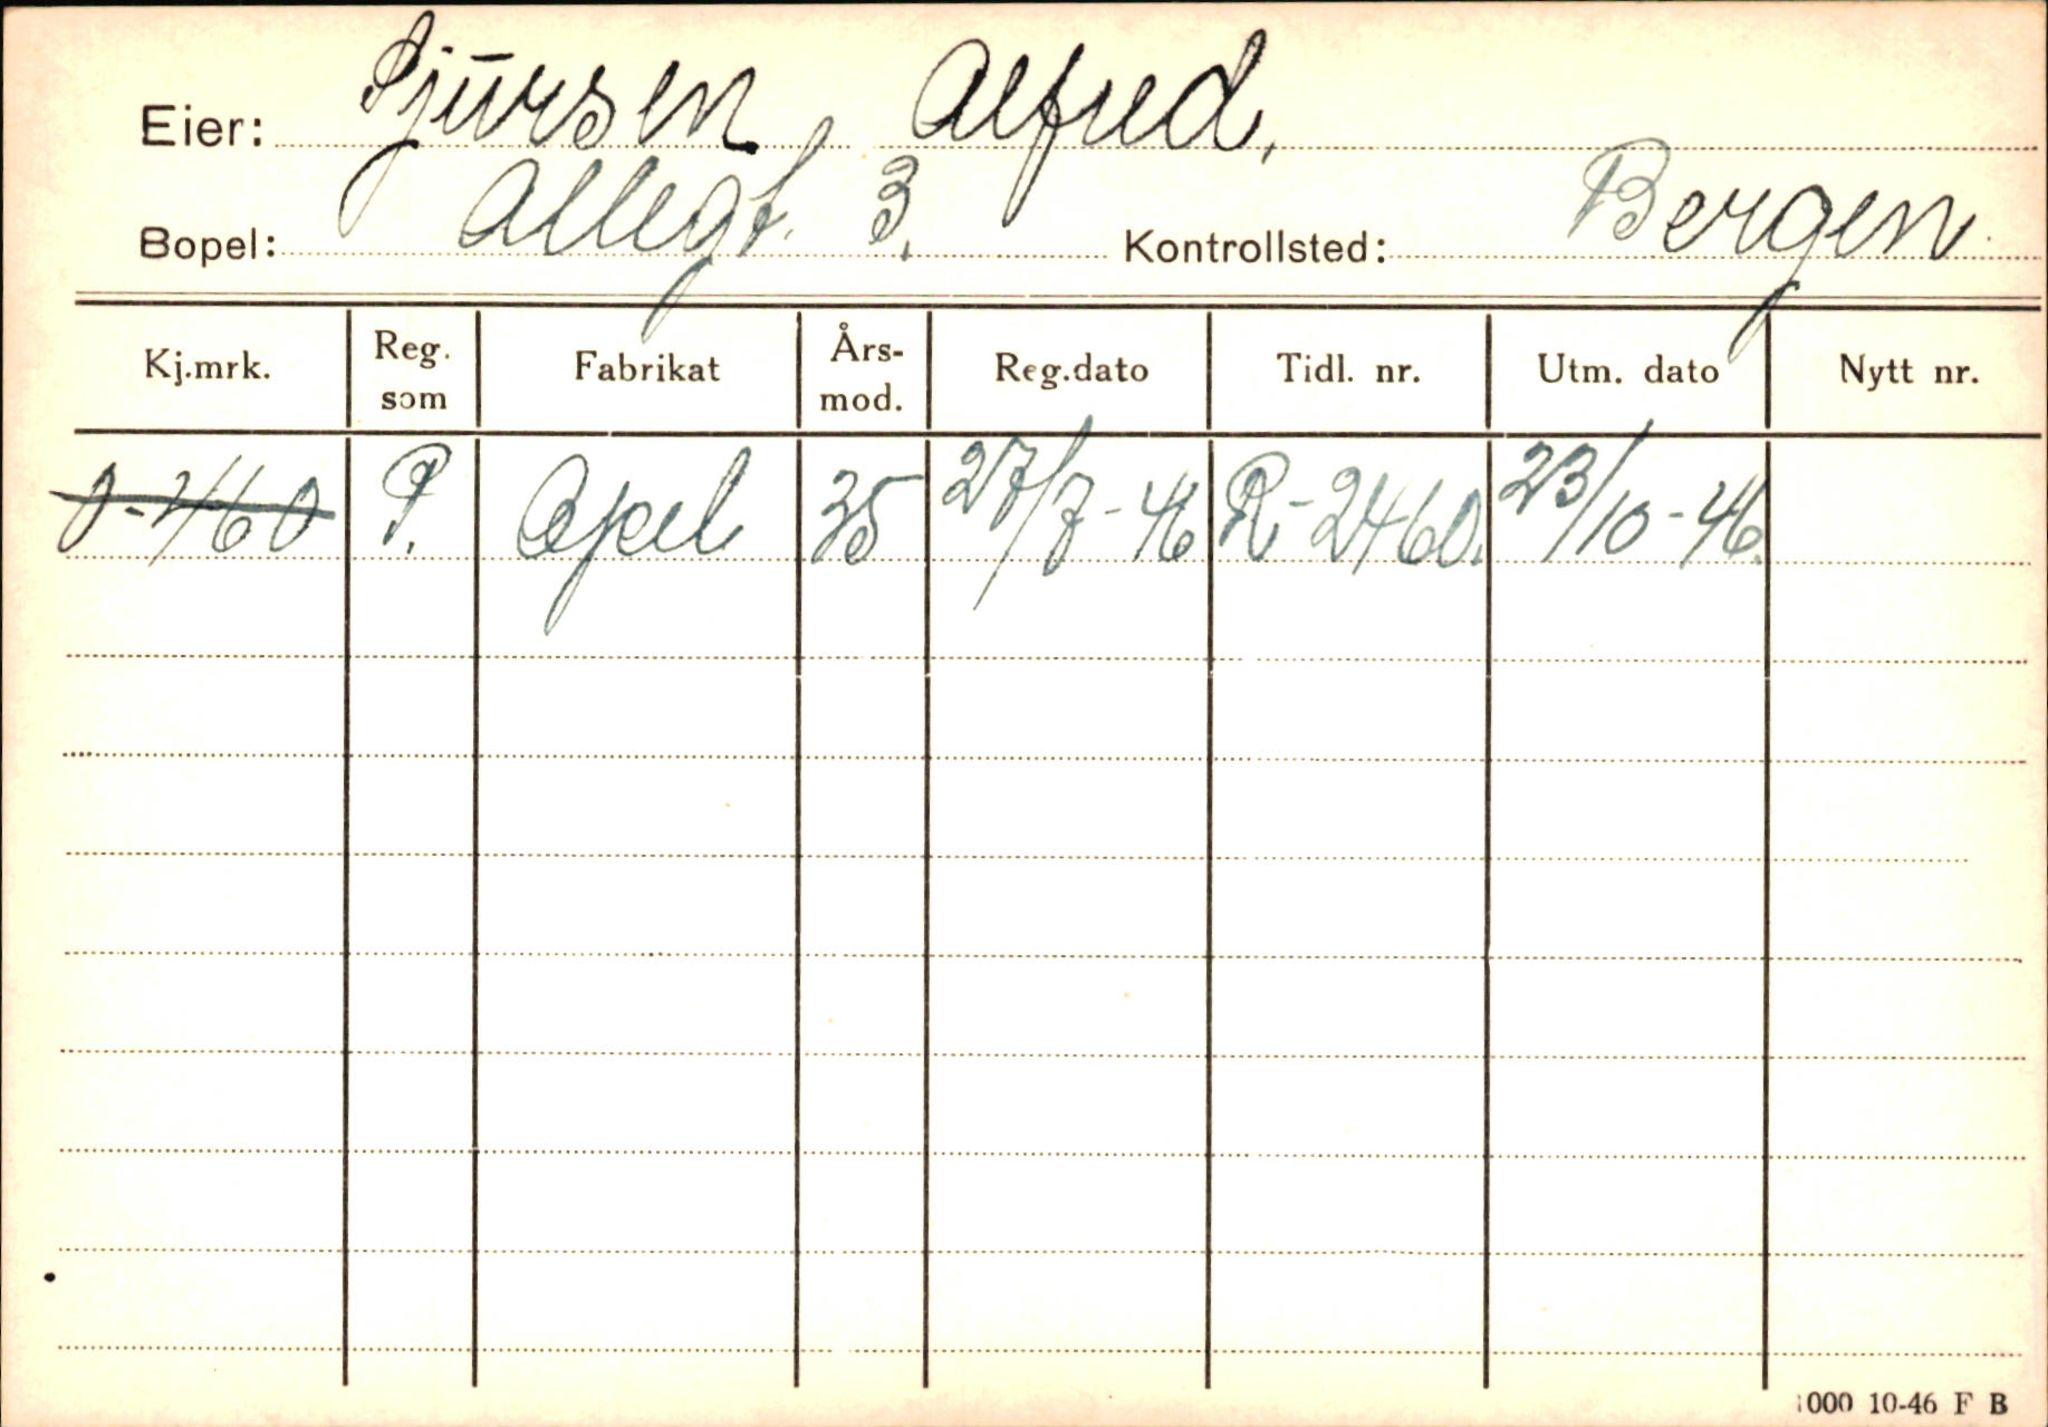 Eier: Sjursen, Alfred,
Bopel: Allegt. 3. Kontrollsted: Bergen
Kj.mrk. Reg. som Fabrikat Års-mod. Reg.dato Tidl. nr. Utm. dato Nytt nr.
O-460 P. Opel 35 27/7-46 R-2460. 23/10-46.
1000 10-46 F B